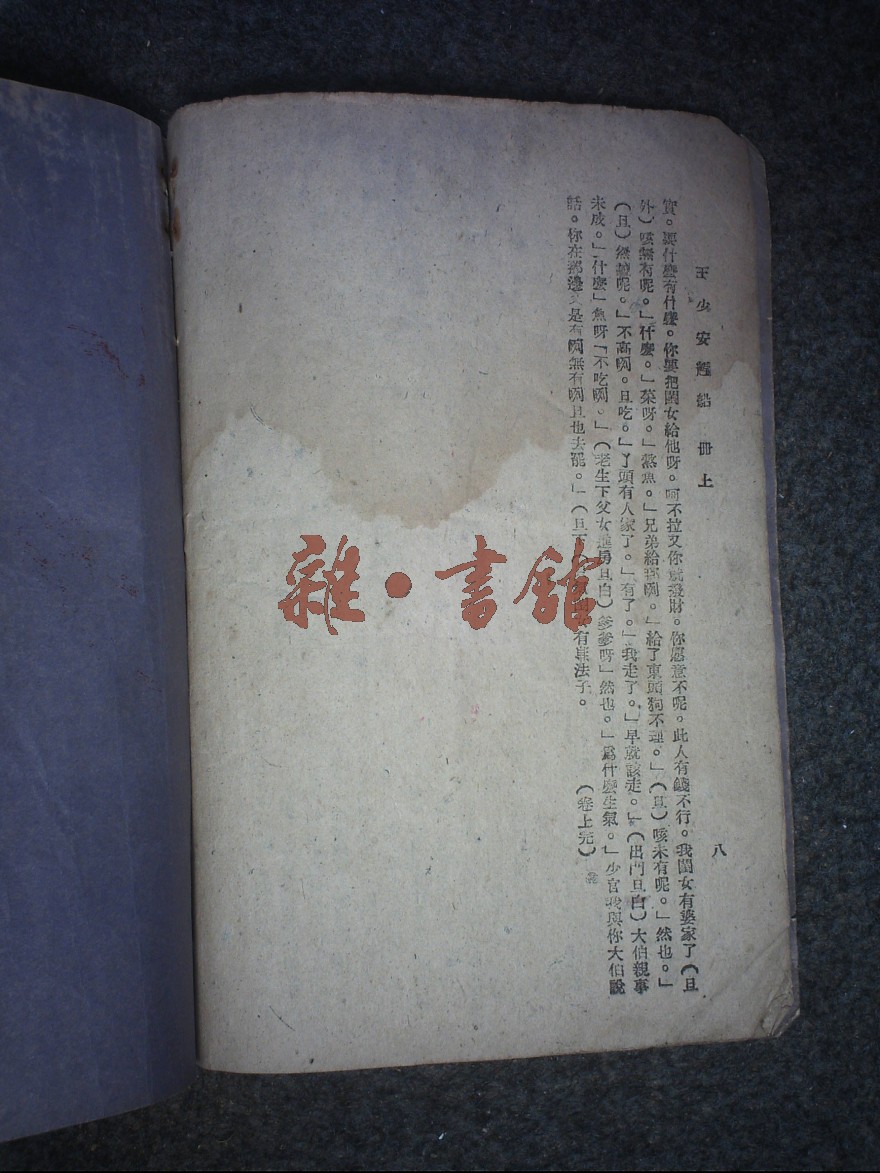 王少安趕船 冊上
八
實。要什麼有什麼。你要把閨女給他呀。呵不拉又你就發財。你愿意不呢。此人有錢不行。我閨女有婆家了(旦
外)咳無有呢。」什麼。」菜呀。」熬魚。」兄弟給那啊。」給了東頭狗不理。」(旦)咳未有呢。」然也。」
(旦)燃麵呢。」不高啊。旦吃。」丫頭有人家了。」有了。」我走了。」早就該走。」(出門旦白)大伯親事
未成。」什麼」魚呀「不吃啊。」(老生下父女進房旦白)爹爹呀」然也。」爲什麼生氣。」少官我與你大伯說
話。你在那邊又是有啊無有啊旦也去罷。」(旦下 有 法子。 (卷上完)
雜·書館